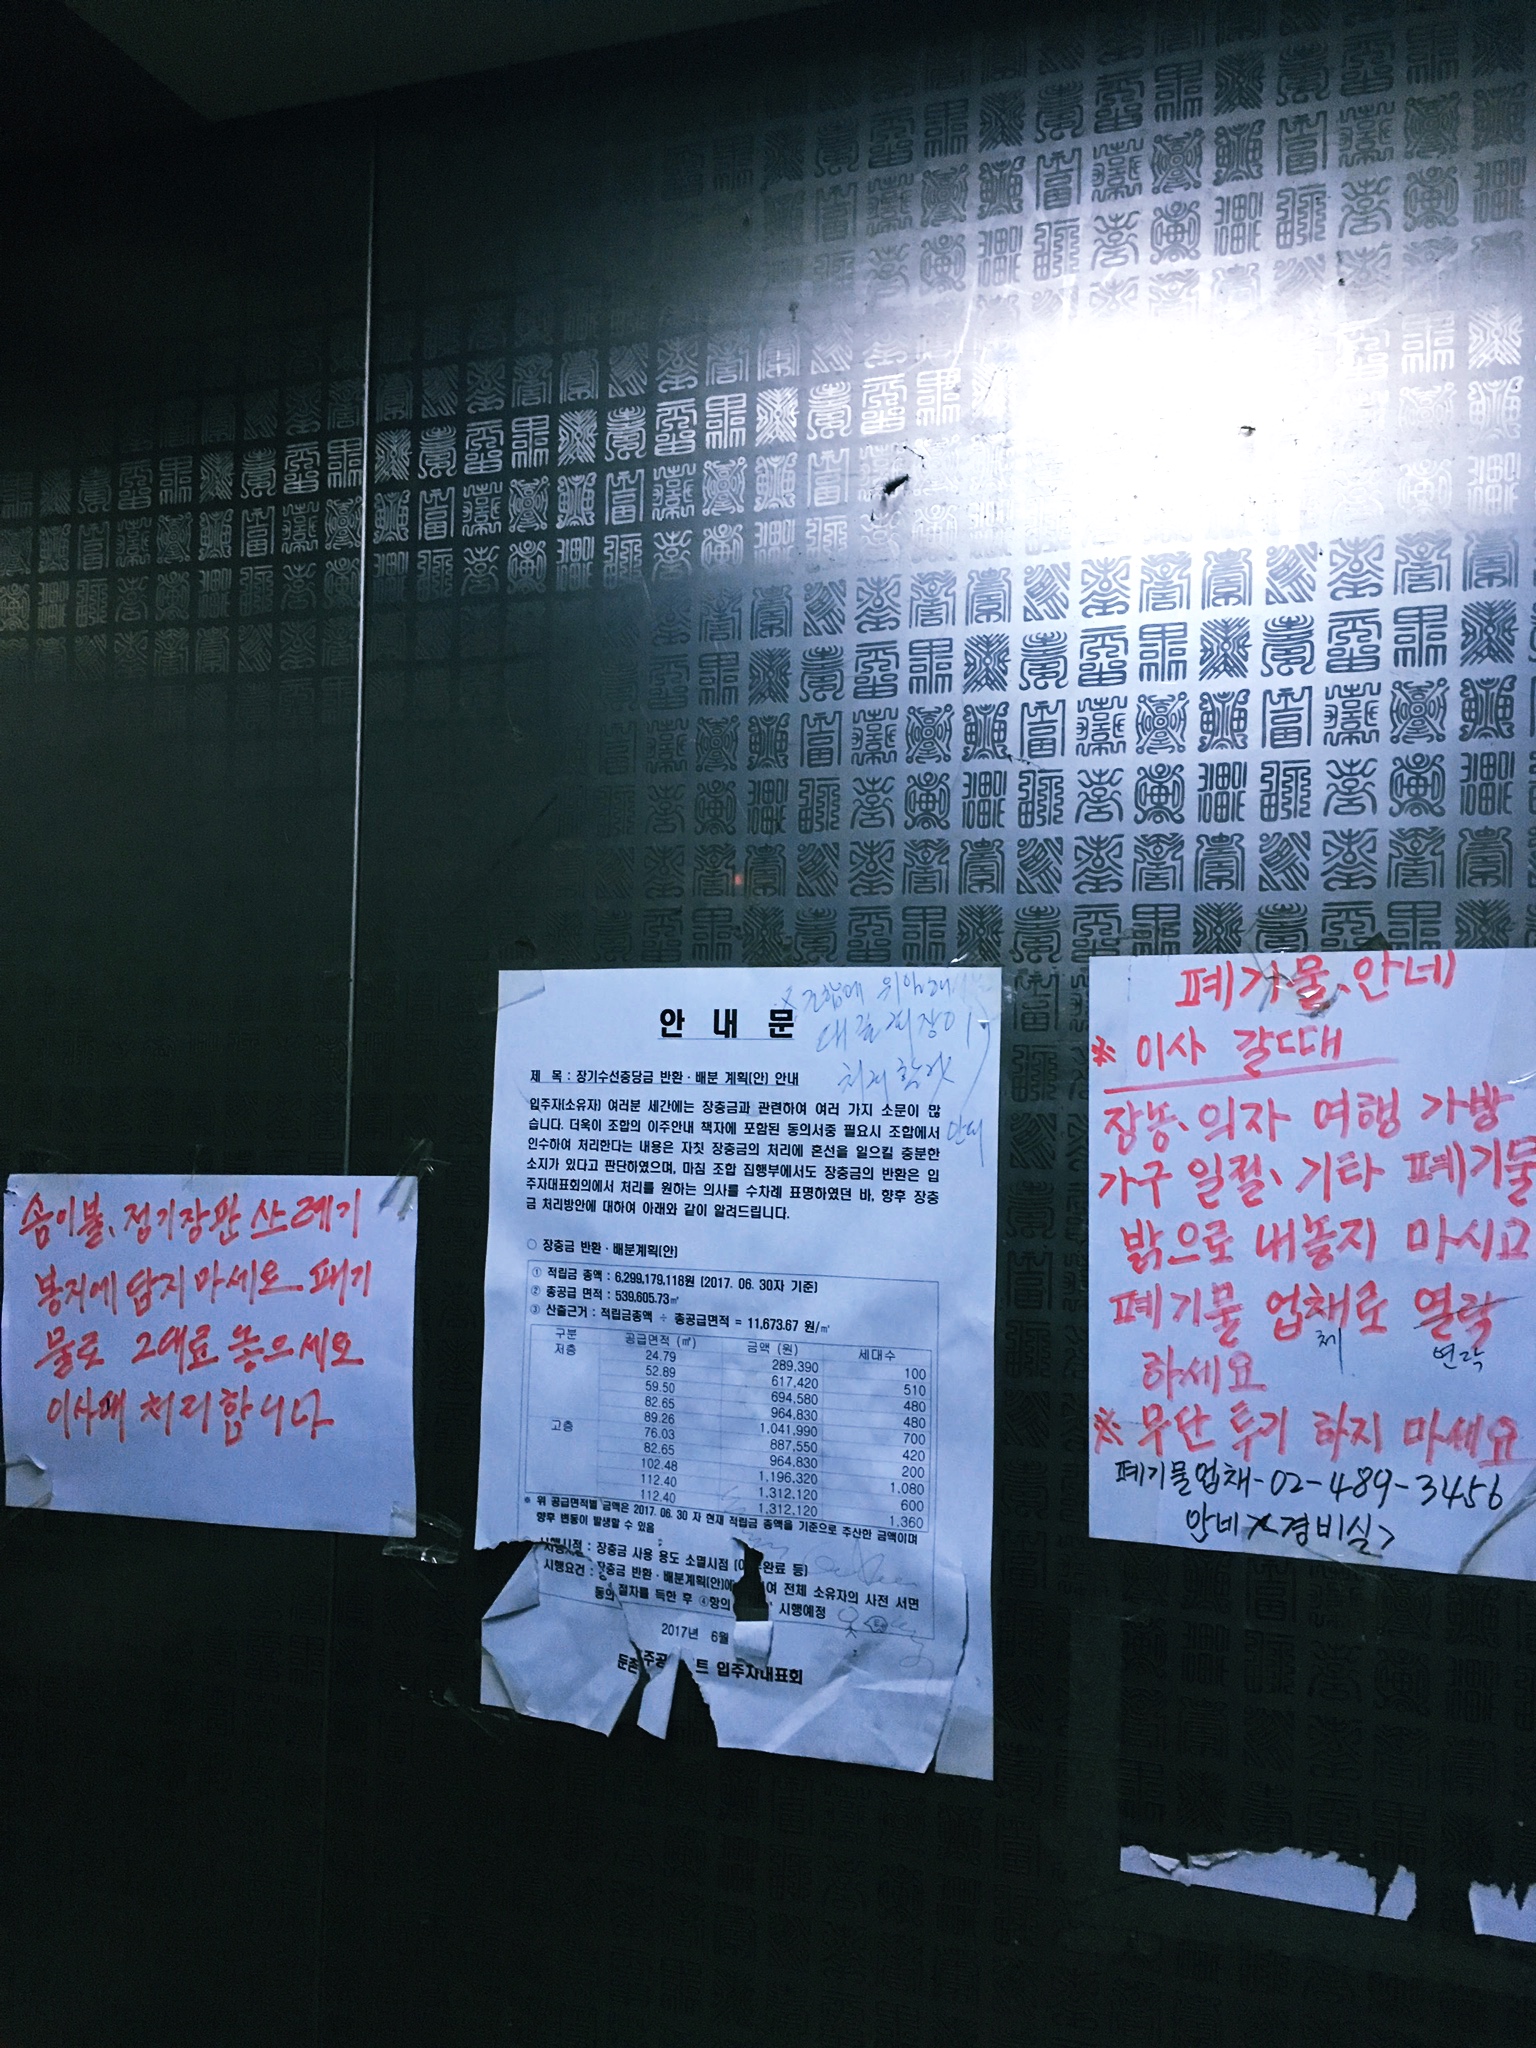 솜이불, 전기장판 쓰레기
봉지에 담지 마세요 폐기
물로 그대로 놓으세요
이사때 처리합니다
안 내 문
제 목 : 장기수선충당금 반환·배분 계획(안) 안내
입주자(소유자) 여러분 세간에는 장충금과 관련하여 여러 가지 소문이 많
습니다. 더욱이 조합의 이주안내 책자에 포함된 동의서중 필요시 조합에서
인수하여 처리한다는 내용은 자칫 장충금의 처리에 혼선을 일으킬 충분한
소지가 있다고 판단하였으며, 마침 조합 집행부에서도 장충금의 반환은 입
주자대표회의에서 처리를 원하는 의사를 수차례 표명하였던 바, 향후 장충
금 처리방안에 대하여 아래와 같이 알려드립니다.
○ 장충금 반환·배분계획(안)
① 적립금 총액 : 6,299,179,118원 (2017. 06. 30자 기준)
② 총공급 면적 : 539,605.73㎡
③ 산출근거 : 적립금총액 ÷ 총공급면적 = 11,673.67 원/㎡
구분 공급면적 (㎡) 금액 (원) 세대수
저층 24.79 289,390 100
52.89 617,420 510
59.50 694,580 480
82.65 964,830 480
89.26 1,041,990 700
고층 76.03 887,550 420
82.65 964,830 200
102.48 1,196,320 1,080
112.40 1,312,120 600
112.40 1,312,120 1,360
※ 위 공급면적별 금액은 2017. 06. 30 자 현재 적립금 총액을 기준으로 추산한 금액이며
향후 변동이 발생할 수 있음
시행시점 : 장충금 사용 용도 소멸시점 (이주완료 등)
시행요건 : 장충금 반환·배분계획(안)에 여 전체 소유자의 사전 서면
동의 절차를 득한 후 ④항의 시행예정
2017년 6월
둔촌주공 트 입주자대표회
폐기물 안네
※ 이사 갈때
장농, 의자 여행 가방
가구 일절, 기타 폐기물
밖으로 내놓지 마시고
폐기물 업채로 열락
체 연락
하세요
※ 무단 투기 하지 마세요
폐기물업채-02-489-3456
안네 <경비실>